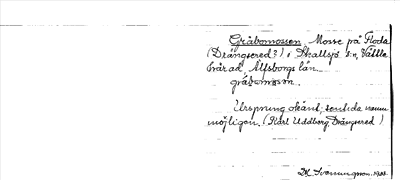 Gråbomossen. Mosse på Floda
(Drängsered?) i Skallsjö s:n, Vättle
härad, Älfsborgs län.
gråbomosen.
Ursprung okänt, senkda namn
möjligen. (Karl Uddberg, Drängsered)